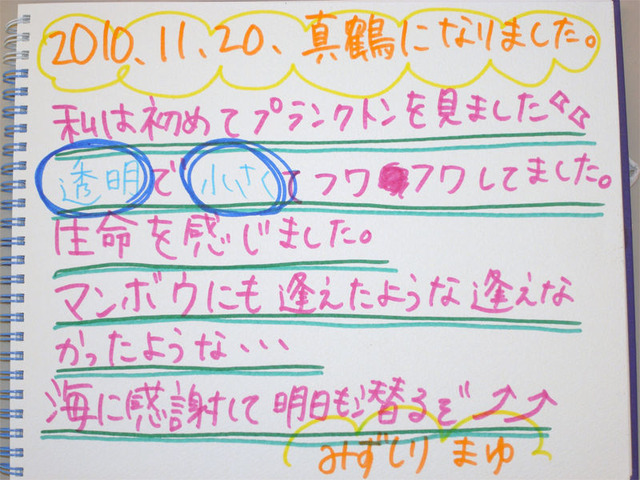 2010.11.20、真鶴になりました。
私は初めてプランクトンを見ました
透明で小さくてフワフワしてました。
生命を感じました。
マンボウにも逢えたような逢えな
かったような・・・
海に感謝して明日も替るぞ
みずしり まゆ